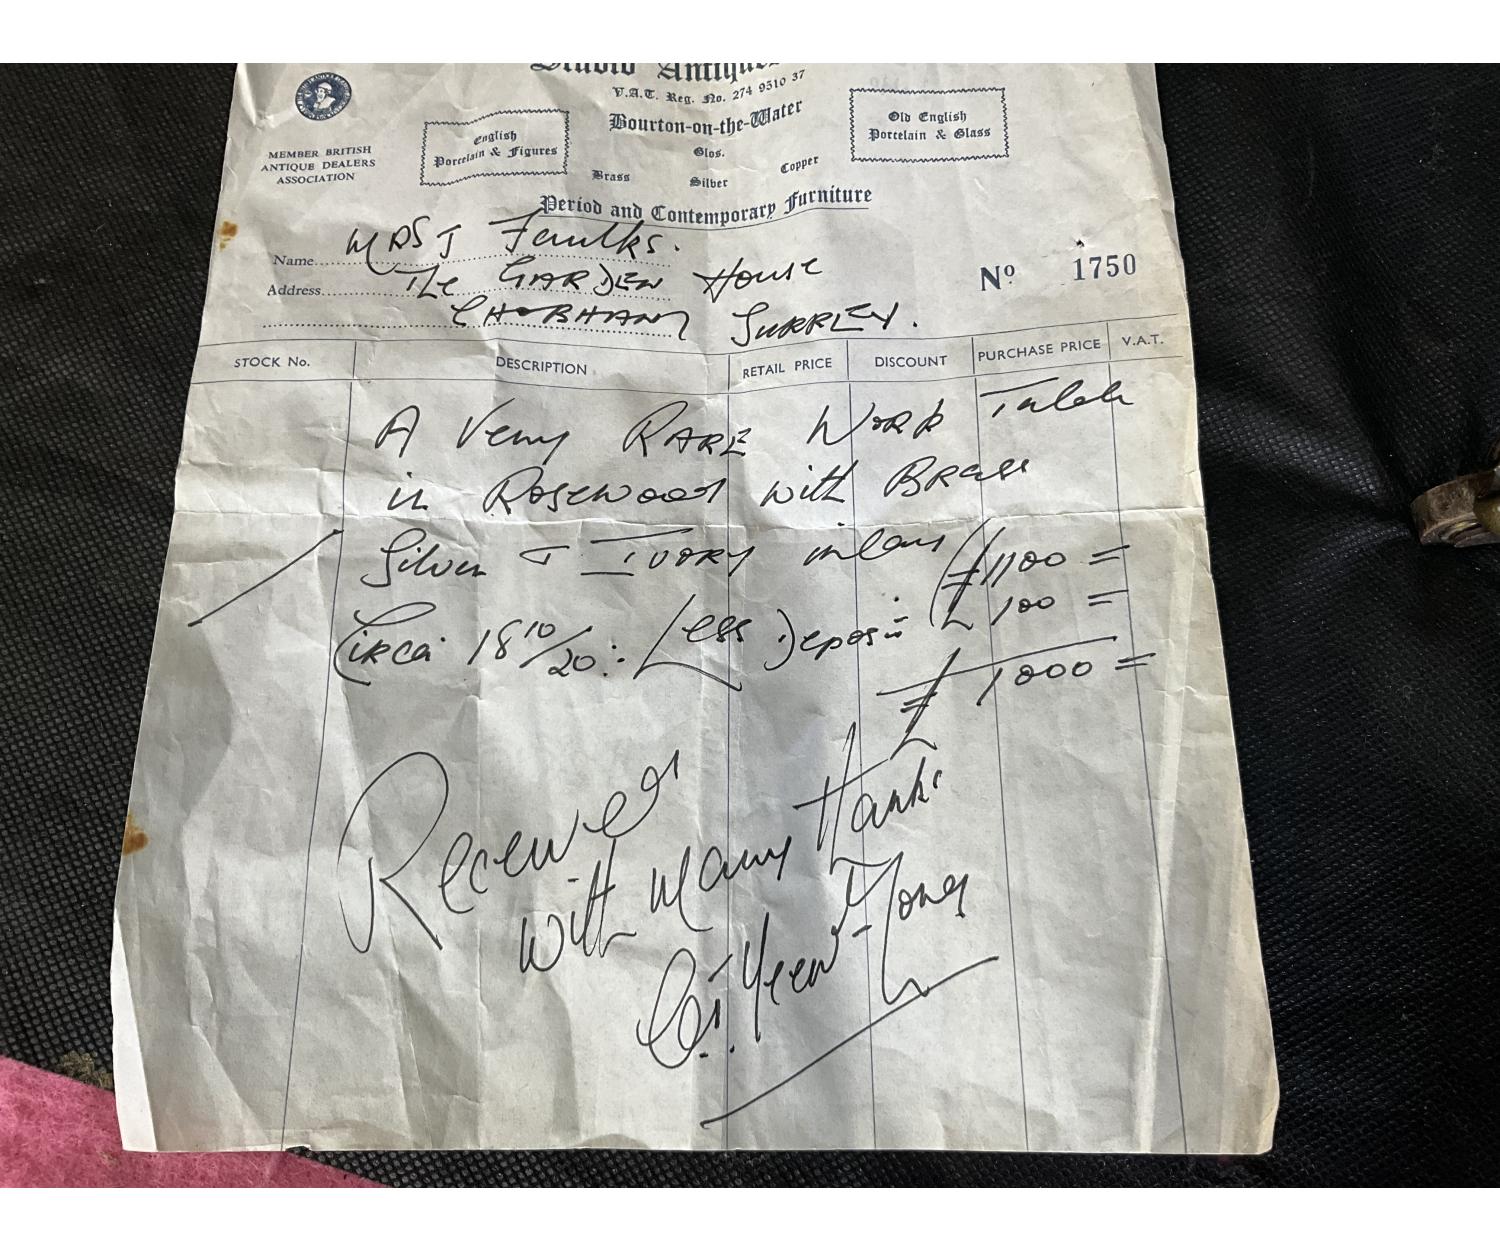 Studio Antiques
V.A.T. Reg. No. 274 9510 37
Bourton-on-the-Water
Glos.
Brass Silver Copper
Period and Contemporary Furniture
MEMBER BRITISH
ANTIQUE DEALERS
ASSOCIATION
English
Porcelain & Figures
Old English
Porcelain & Glass
Name MRS J Faulks.
Address The GARDEN House
CHOBHAM SURREY.
No 1750
STOCK No. DESCRIPTION RETAIL PRICE DISCOUNT PURCHASE PRICE V.A.T.
A Very RARE WORK Table
in Rosewood with Brass
Silver & IVORY inlay £1100 =
Circa 1810/20: Less Deposit £100 =
£1000 =
Received
with Many Thanks